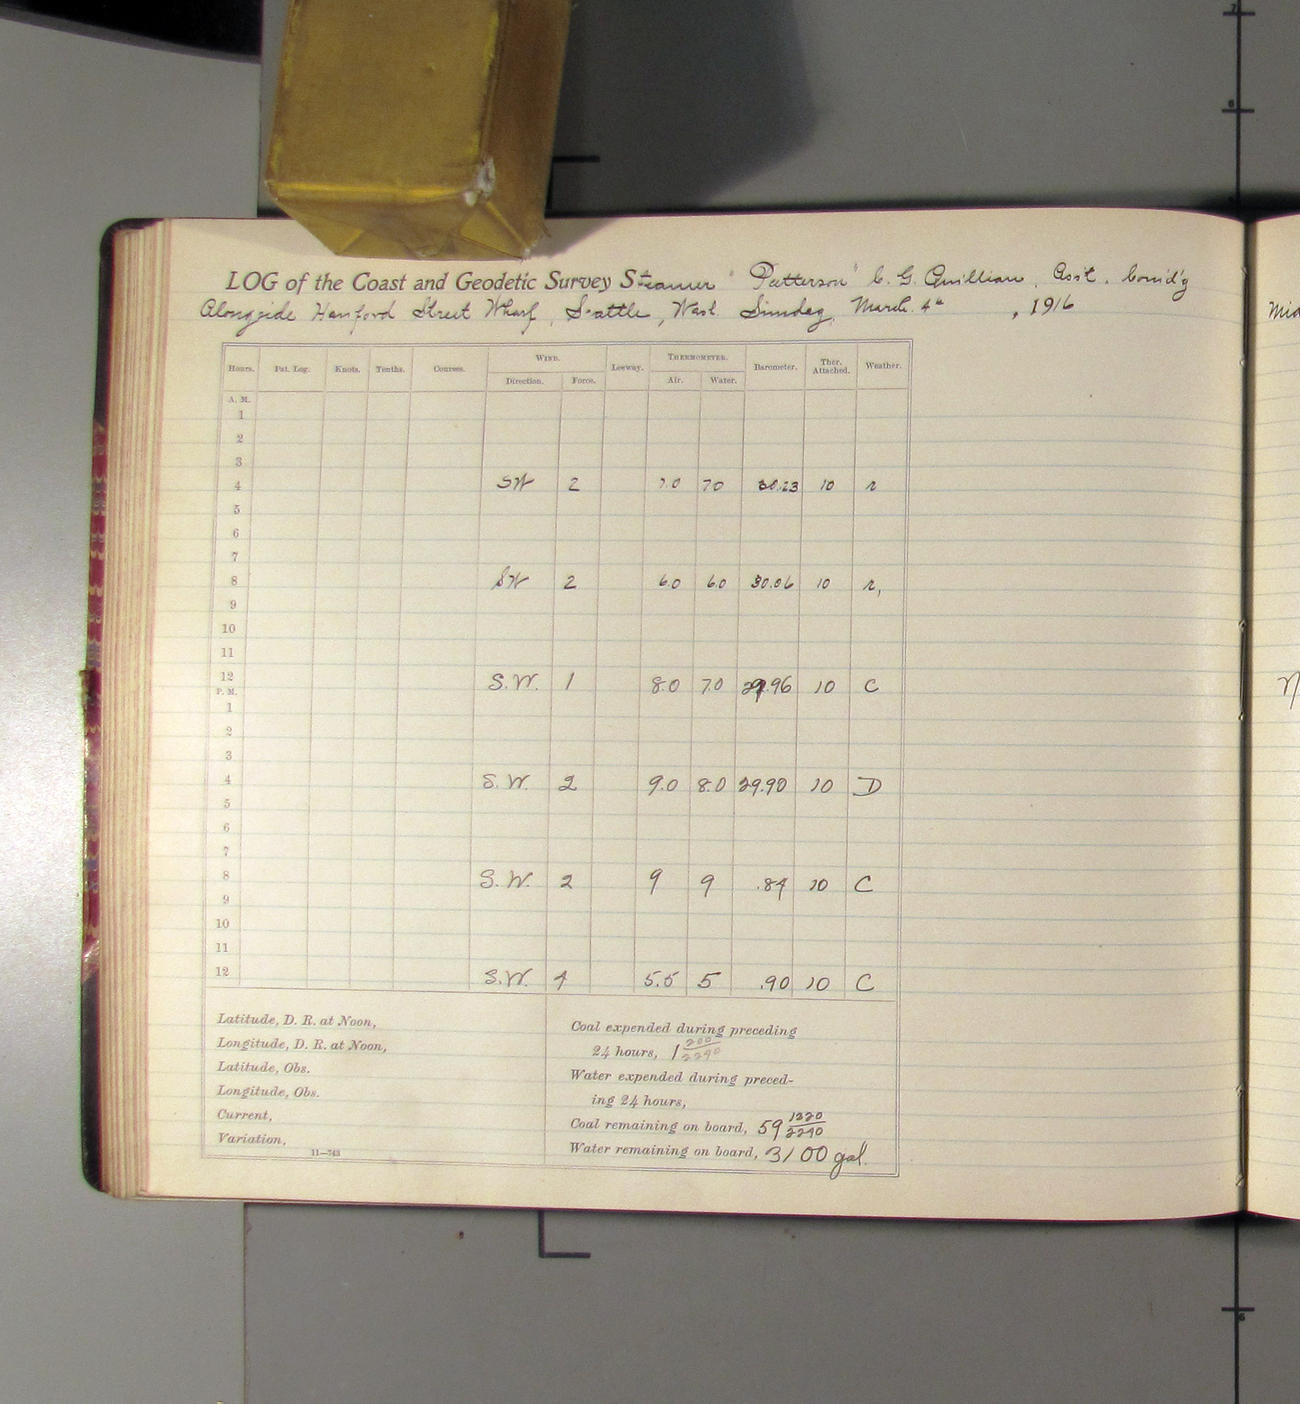 LOG of the Coast and Geodetic Survey Steamer "Patterson" C. G. Quillian, Asst. Comd'g
Alongside Hanford Street Wharf, Seattle, Wash. Sunday, March. 4th, 1916
Hours. Pat. Log. Knots. Tenths. Courses. WIND. Direction. Force. Leeway. THERMOMETER. Air. Water. Barometer. Ther. Attached. Weather.
A. M.
1
2
3
4 SW 2 7.0 70 30.23 10 r
5
6
7
8 SW 2 6.0 6.0 30.06 10 r,
9
10
11
12 S.W. 1 8.0 7.0 29.96 10 C
P. M.
1
2
3
4 S.W. 2 9.0 8.0 29.90 10 D
5
6
7
8 S.W. 2 9 9 .84 10 C
9
10
11
12 S.W. 4 5.5 5 .90 10 C
Latitude, D. R. at Noon,
Longitude, D. R. at Noon,
Latitude, Obs.
Longitude, Obs.
Current,
Variation,
11—743
Coal expended during preceding
24 hours, 1 200/2240
Water expended during preced-
ing 24 hours,
Coal remaining on board, 59 1320/2240
Water remaining on board, 3100 gal.